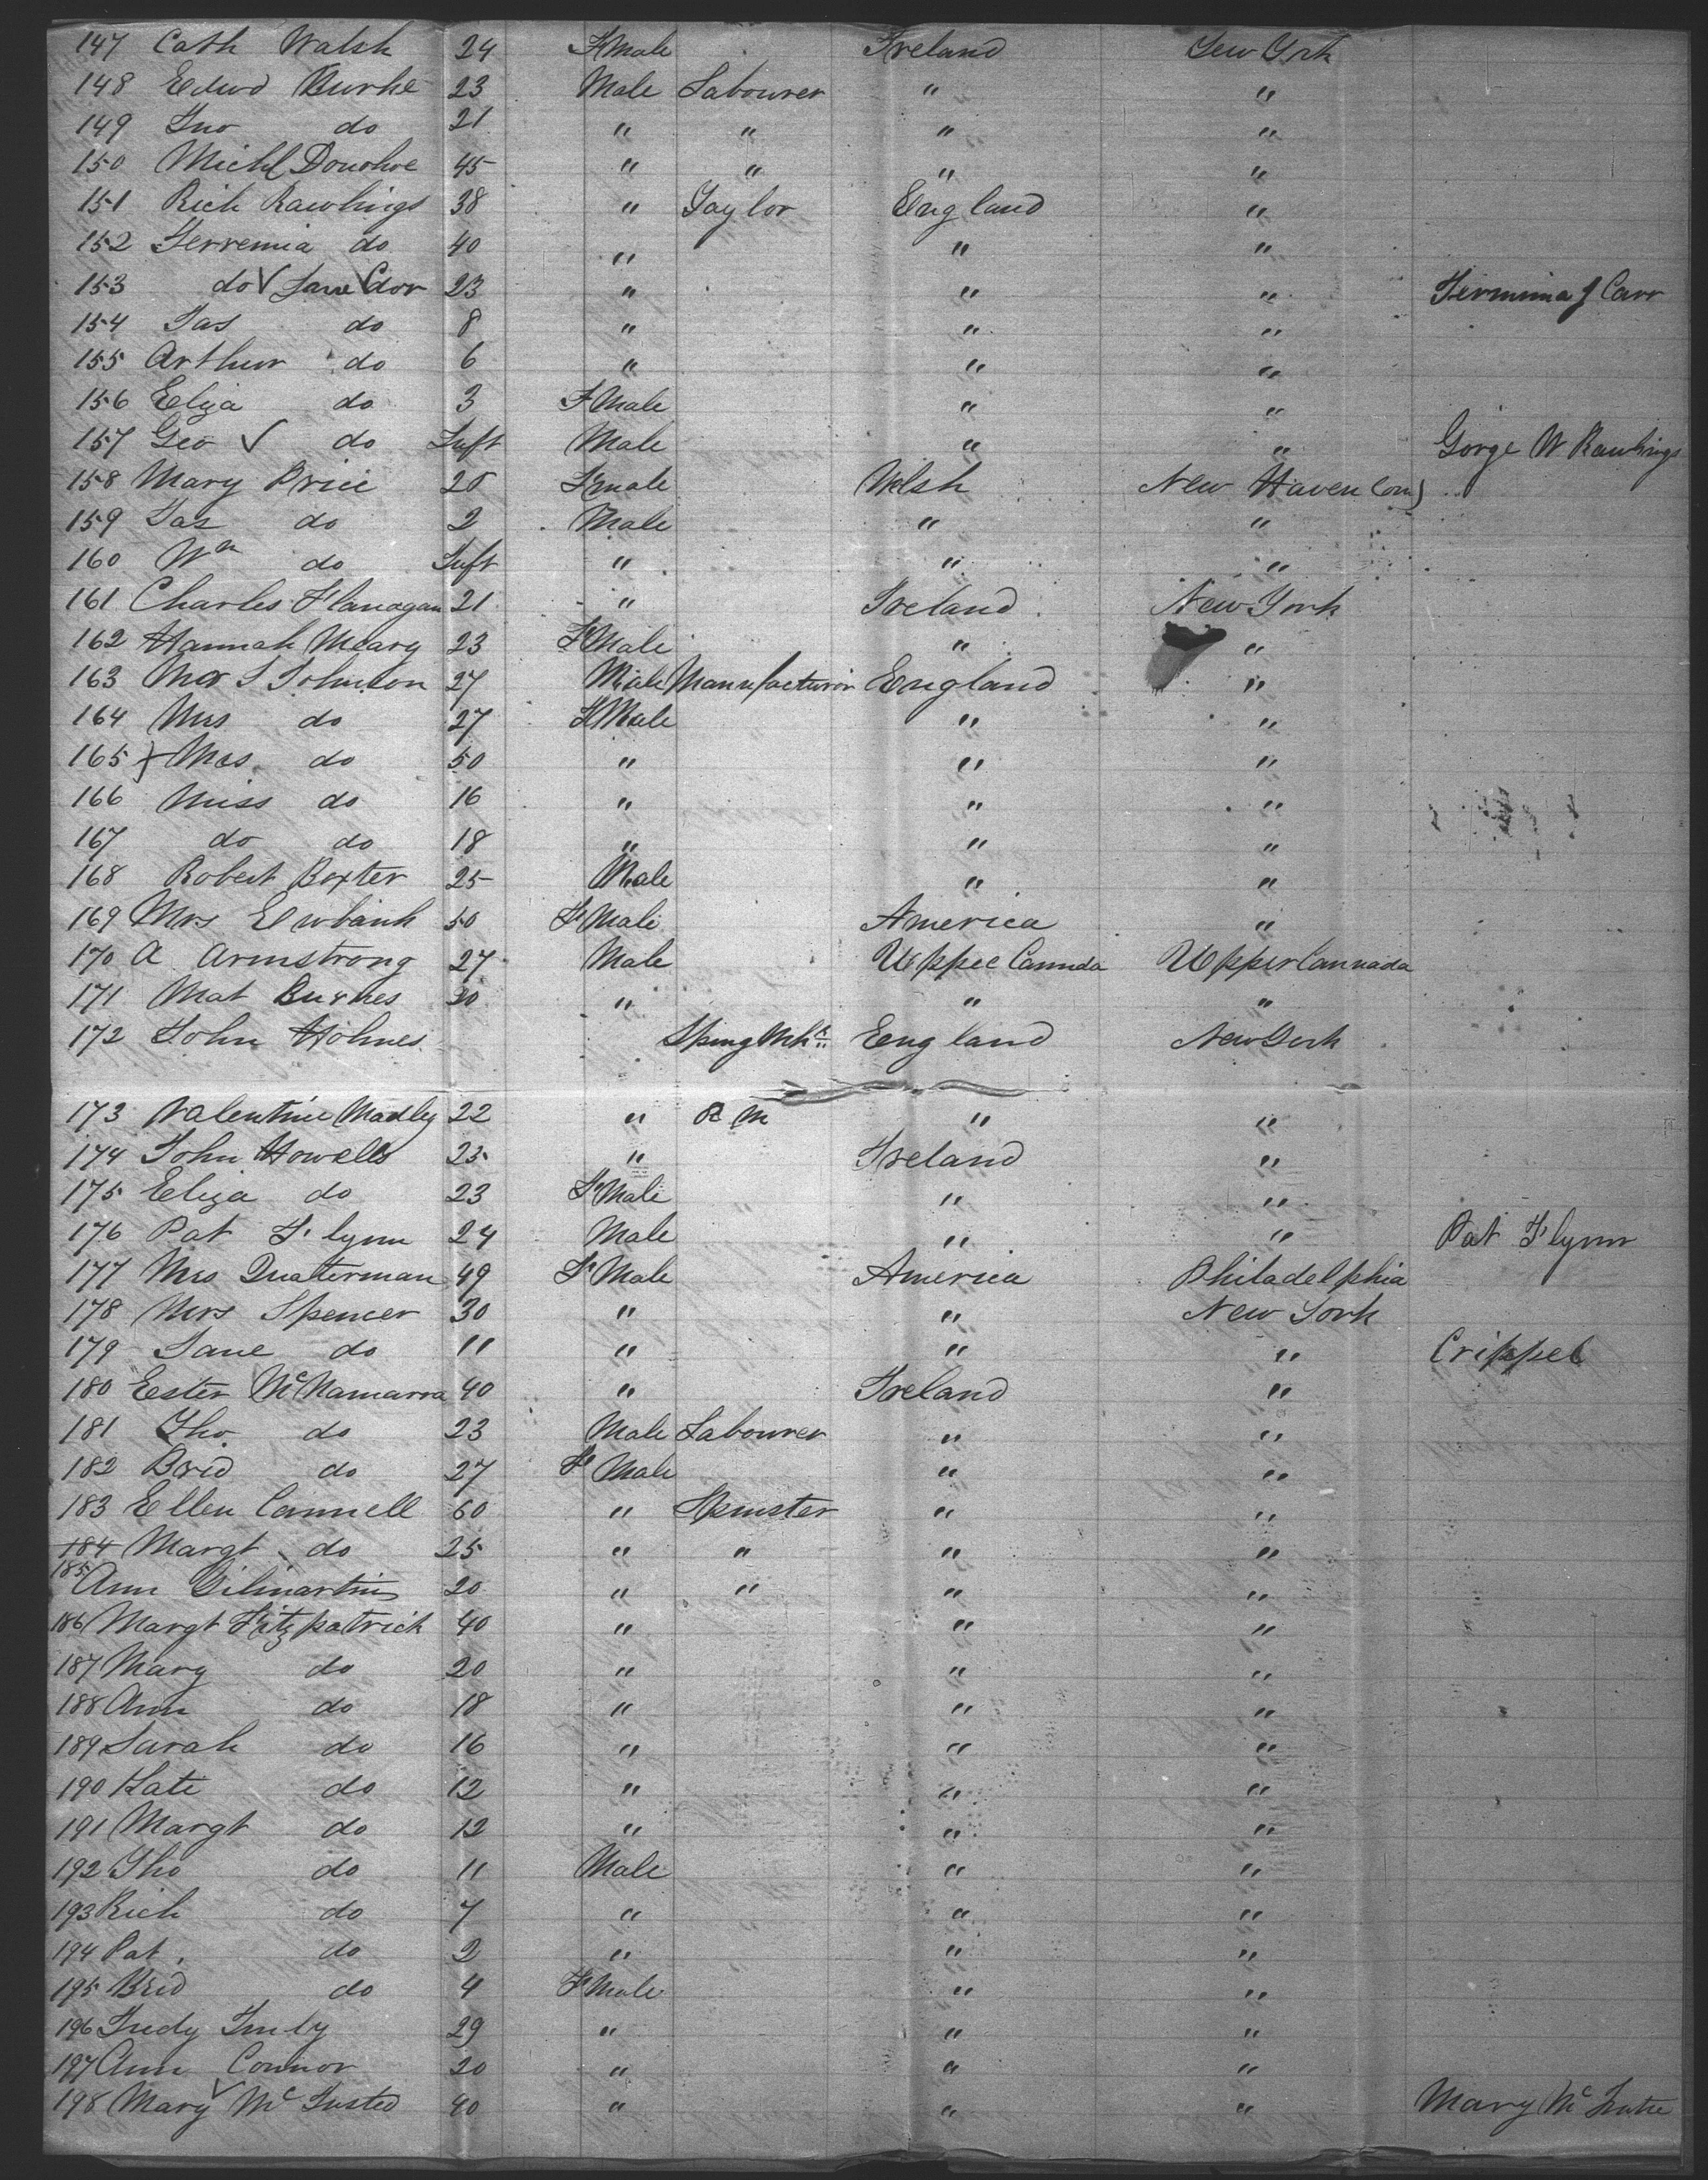 147 Cath Walsh 24 F Male Ireland New York
148 Edwd Burke 23 Male Labourer " "
149 Jno do 21 " " " "
150 Michl Donohoe 45 " " " "
151 Rich Rawlings 38 " Taylor England "
152 Jerremia do 40 " " "
153 do √ Jane √ dor 23 " " " Jermima J Carr
154 Jas do 8 " " "
155 Arthur do 6 " " "
156 Eliza do 3 F Male " "
157 Geo √ do Inft Male " " Gorge W Rawlings
158 Mary Price 20 Female Welsh New Haven Con
159 Jas do 2 Male " "
160 Wm do Inft " " "
161 Charles Flanagan 21 " Ireland New York
162 Hannah Meary 23 F Male " "
163 Mr S Johnson 27 Male Manufacturor England "
164 Mrs do 27 F Male " "
165 Mrs do 50 " " "
166 Miss do 16 " " "
167 do do 18 " " "
168 Robert Boxter 25 Male " "
169 Mrs Ewbank 50 F Male America "
170 A Armstrong 27 Male Upper Cannda Upper Cannada
171 Mat Burnes 30 " " "
172 John Holmes England New York
173 Valentine Madley 22 " R M " "
174 John Howells 25 " Ireland "
175 Eliza do 23 F Male " "
176 Pat Flynn 24 Male " " Pat Flynn
177 Mrs Quaterman 49 F Male America Philadelphia
178 Mrs Spencer 30 " " New York
179 Jane do 11 " " " Crippel
180 Eester McNamarra 40 " Ireland "
181 Tho do 23 Male Labourer " "
182 Brid do 27 F Male " "
183 Ellen Cannell 60 " Spinster " "
184 Margt do 25 " " " "
185 Ann Gilmartin 20 " " " "
186 Margt Fitzpatrick 40 " " "
187 Mary do 20 " " "
188 Ann do 18 " " "
189 Sarah do 16 " " "
190 Kate do 12 " " "
191 Margt do 12 " " "
192 Tho do 11 Male " "
193 Rich do 7 " " "
194 Pat do 2 " " "
195 Brid do 4 F Male " "
196 Judy 29 " " "
197 Ann Connor 20 " " "
198 Mary √ Mc Justed 40 " " " Mary Mc